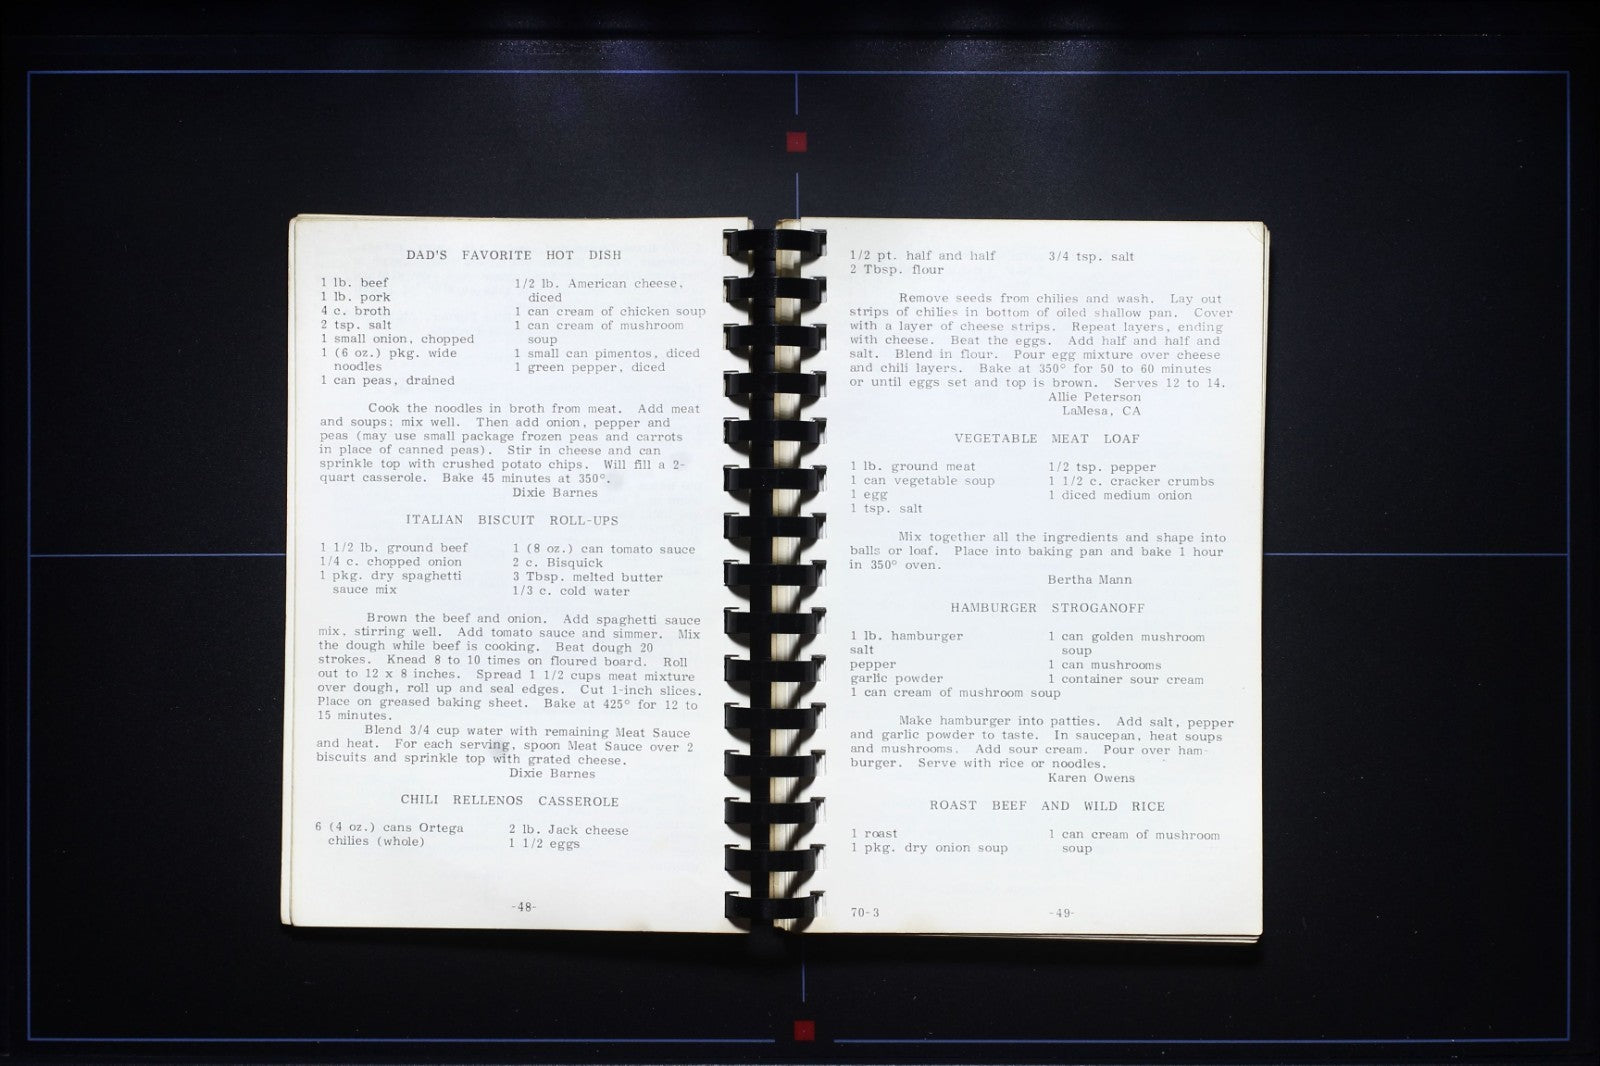 DAD'S FAVORITE HOT DISH
1 lb. beef
1 lb. pork
4 c. broth
2 tsp. salt
1 small onion, chopped
1 (6 oz.) pkg. wide
noodles
1 can peas, drained
1/2 lb. American cheese,
diced
1 can cream of chicken soup
1 can cream of mushroom
soup
1 small can pimentos, diced
1 green pepper, diced
Cook the noodles in broth from meat. Add meat
and soups; mix well. Then add onion, pepper and
peas (may use small package frozen peas and carrots
in place of canned peas). Stir in cheese and can
sprinkle top with crushed potato chips. Will fill a 2-
quart casserole. Bake 45 minutes at 350°.
Dixie Barnes
ITALIAN BISCUIT ROLL-UPS
1 1/2 lb. ground beef
1/4 c. chopped onion
1 pkg. dry spaghetti
sauce mix
1 (8 oz.) can tomato sauce
2 c. Bisquick
3 Tbsp. melted butter
1/3 c. cold water
Brown the beef and onion. Add spaghetti sauce
mix, stirring well. Add tomato sauce and simmer. Mix
the dough while beef is cooking. Beat dough 20
strokes. Knead 8 to 10 times on floured board. Roll
out to 12 x 8 inches. Spread 1 1/2 cups meat mixture
over dough, roll up and seal edges. Cut 1-inch slices.
Place on greased baking sheet. Bake at 425° for 12 to
15 minutes.
Blend 3/4 cup water with remaining Meat Sauce
and heat. For each serving, spoon Meat Sauce over 2
biscuits and sprinkle top with grated cheese.
Dixie Barnes
CHILI RELLENOS CASSEROLE
6 (4 oz.) cans Ortega
chilies (whole)
2 lb. Jack cheese
1 1/2 eggs
-48-
1/2 pt. half and half
2 Tbsp. flour
3/4 tsp. salt
Remove seeds from chilies and wash. Lay out
strips of chilies in bottom of oiled shallow pan. Cover
with a layer of cheese strips. Repeat layers, ending
with cheese. Beat the eggs. Add half and half and
salt. Blend in flour. Pour egg mixture over cheese
and chili layers. Bake at 350° for 50 to 60 minutes
or until eggs set and top is brown. Serves 12 to 14.
Allie Peterson
LaMesa, CA
VEGETABLE MEAT LOAF
1 lb. ground meat
1 can vegetable soup
1 egg
1 tsp. salt
1/2 tsp. pepper
1 1/2 c. cracker crumbs
1 diced medium onion
Mix together all the ingredients and shape into
balls or loaf. Place into baking pan and bake 1 hour
in 350° oven.
Bertha Mann
HAMBURGER STROGANOFF
1 lb. hamburger
salt
pepper
garlic powder
1 can cream of mushroom soup
1 can golden mushroom
soup
1 can mushrooms
1 container sour cream
Make hamburger into patties. Add salt, pepper
and garlic powder to taste. In saucepan, heat soups
and mushrooms. Add sour cream. Pour over ham-
burger. Serve with rice or noodles.
Karen Owens
ROAST BEEF AND WILD RICE
1 roast
1 pkg. dry onion soup
1 can cream of mushroom
soup
70-3
-49-